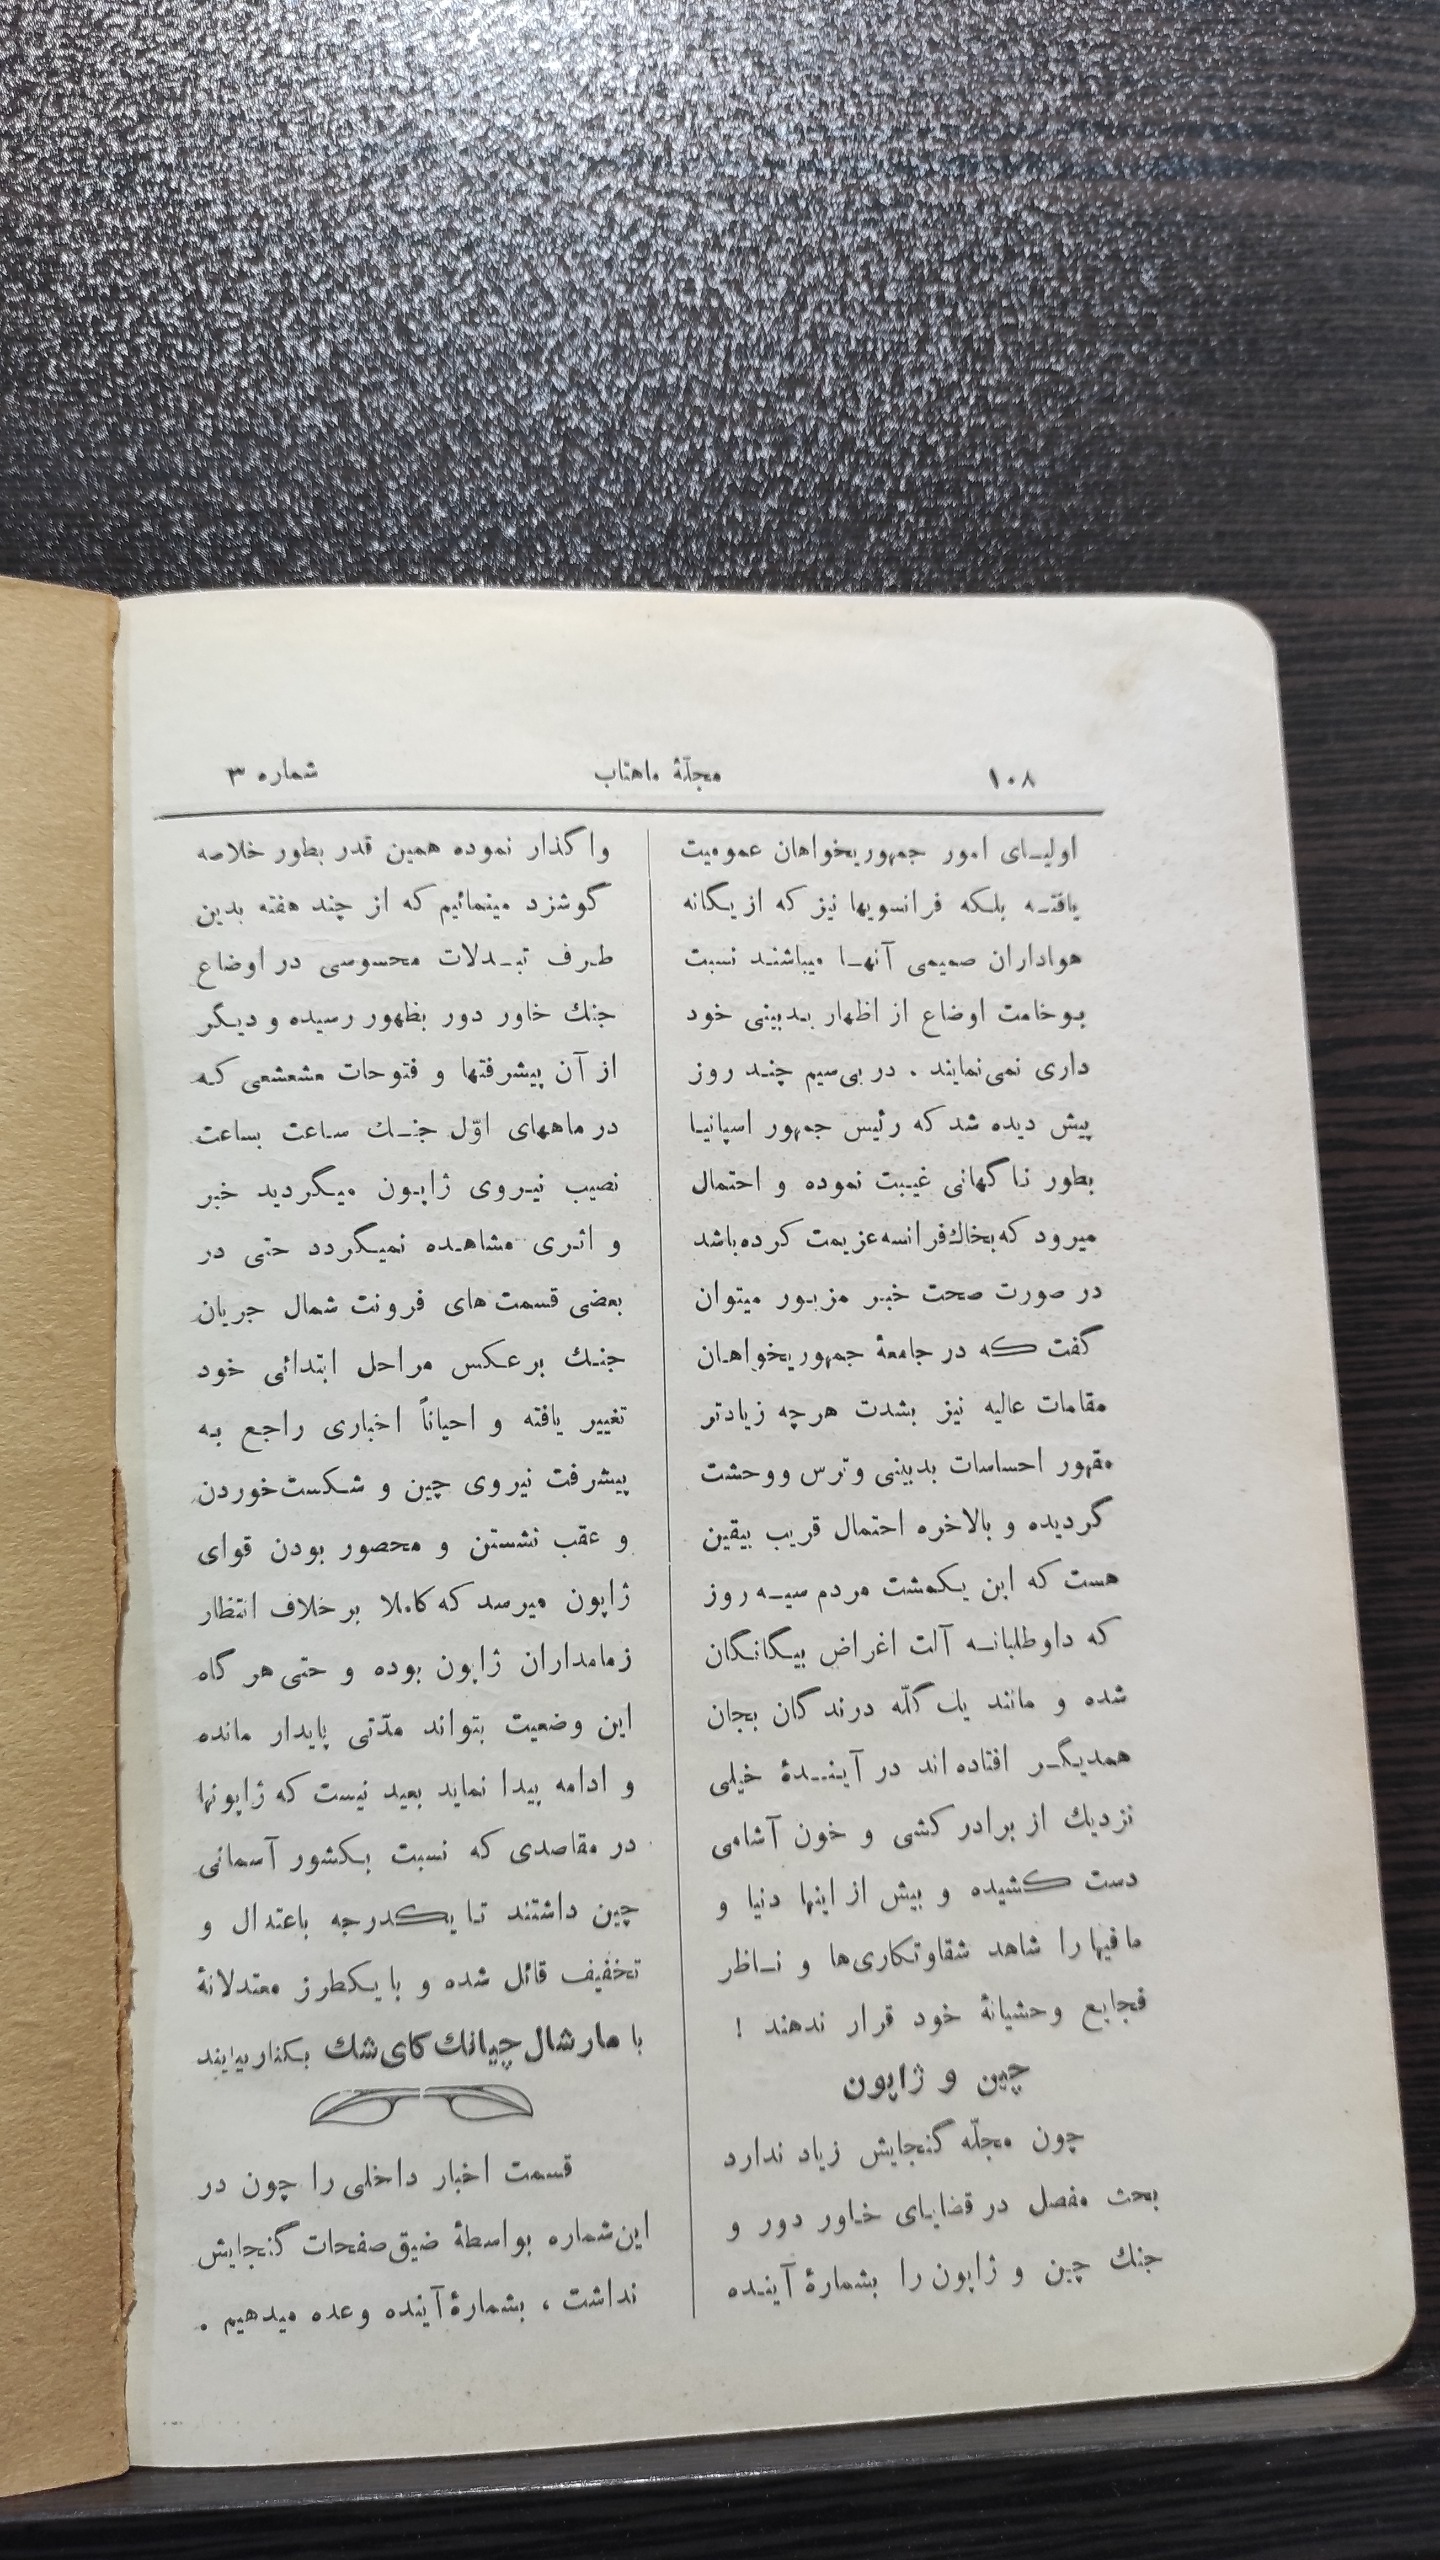 ۱۰۸ مجلّهٔ ماهتاب شماره ۳
اولیـای امور جمهوریخواهان عمومیت
یافتـه بلکه فرانسویها نیز که از یگانه
هواداران صمیمی آنهـا میباشند نسبت
بوخامت اوضاع از اظهار بدبینی خود
داری نمی‌نمایند . در بی‌سیم چند روز
پیش دیده شد که رئیس جمهور اسپانیا
بطور ناگهانی غیبت نموده و احتمال
میرود که بخاك فرانسه عزیمت کرده باشد
در صورت صحت خبر مزبور میتوان
گفت که در جامعهٔ جمهوریخواهان
مقامات عالیه نیز بشدت هرچه زیادتر
مقهور احساسات بدبینی و ترس و وحشت
گردیده و بالاخره احتمال قریب بیقین
هست که این یکمشت مردم سیـه روز
که داوطلبانـه آلت اغراض بیگانگان
شده و مانند یك گلّه درندگان بجان
همدیگـر افتاده‌اند در آینـدهٔ خیلی
نزدیك از برادر کشی و خون آشامی
دست کشیده و بیش از اینها دنیا و
مافیها را شاهد شقاوتکاری‌ها و نـاظر
فجایع وحشیانهٔ خود قرار ندهند !
چین و ژاپون
چون مجلّه گنجایش زیاد ندارد
بحث مفصل در قضایای خاور دور و
جنك چین و ژاپون را بشمارهٔ آینده
واگذار نموده همین قدر بطور خلاصه
گوشزد مینمائیم که از چند هفته بدین
طرف تبـدلات محسوسی در اوضاع
جنك خاور دور بظهور رسیده و دیگر
از آن پیشرفتها و فتوحات مشعشعی که
در ماههای اوّل جنـك ساعت بساعت
نصیب نیروی ژاپون میگردید خبر
و اثری مشاهده نمیگردد حتی در
بعضی قسمت های فرونت شمال جریان
جنك برعکس مراحل ابتدائی خود
تغییر یافته و احیاناً اخباری راجع به
پیشرفت نیروی چین و شکست خوردن
و عقب نشستن و محصور بودن قوای
ژاپون میرسد که کاملا بر خلاف انتظار
زمامداران ژاپون بوده و حتی هر گاه
این وضعیت بتواند مدّتی پایدار مانده
و ادامه پیدا نماید بعید نیست که ژاپونها
در مقاصدی که نسبت بکشور آسمانی
چین داشتند تا یکدرجه باعتدال و
تخفیف قائل شده و با یکطرز معتدلانهٔ
با مارشال چیانك کای شك بکنار بیایند
قسمت اخبار داخلی را چون در
این شماره بواسطهٔ ضیق صفحات گنجایش
نداشت ، بشمارهٔ آینده وعده میدهیم .